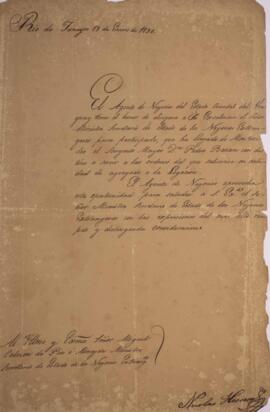 Rio de Janeyro 18 de Enero de 1831.
El Agente de Negocios del Estado Oriental del Uru-
guay tiene el honor de dirigirse a S. Excelencia el Señor
Ministro Secretario de Estado de los Negocios Estran-
geros para participarle, que ha llegado de Montevi-
deo el Sargento Mayor Dn. Pedro
a las ordenes del que subscribe en cali-
dad de agregado a la Legacion.
El Agente de Negocios aprovecha
esta oportunidad para saludar a S. Exa. el Se-
ñor Ministro Secretario de Estado de los Negocios
Estrangeros con las expresiones del mas alto res-
peto y distinguida consideracion.
Al Illmo y Exmo Señor Miguel
Calmon du Pin e Almeyda Ministro
Secretario de Estado de los Negocios Estrang.
Nicolas Herrera